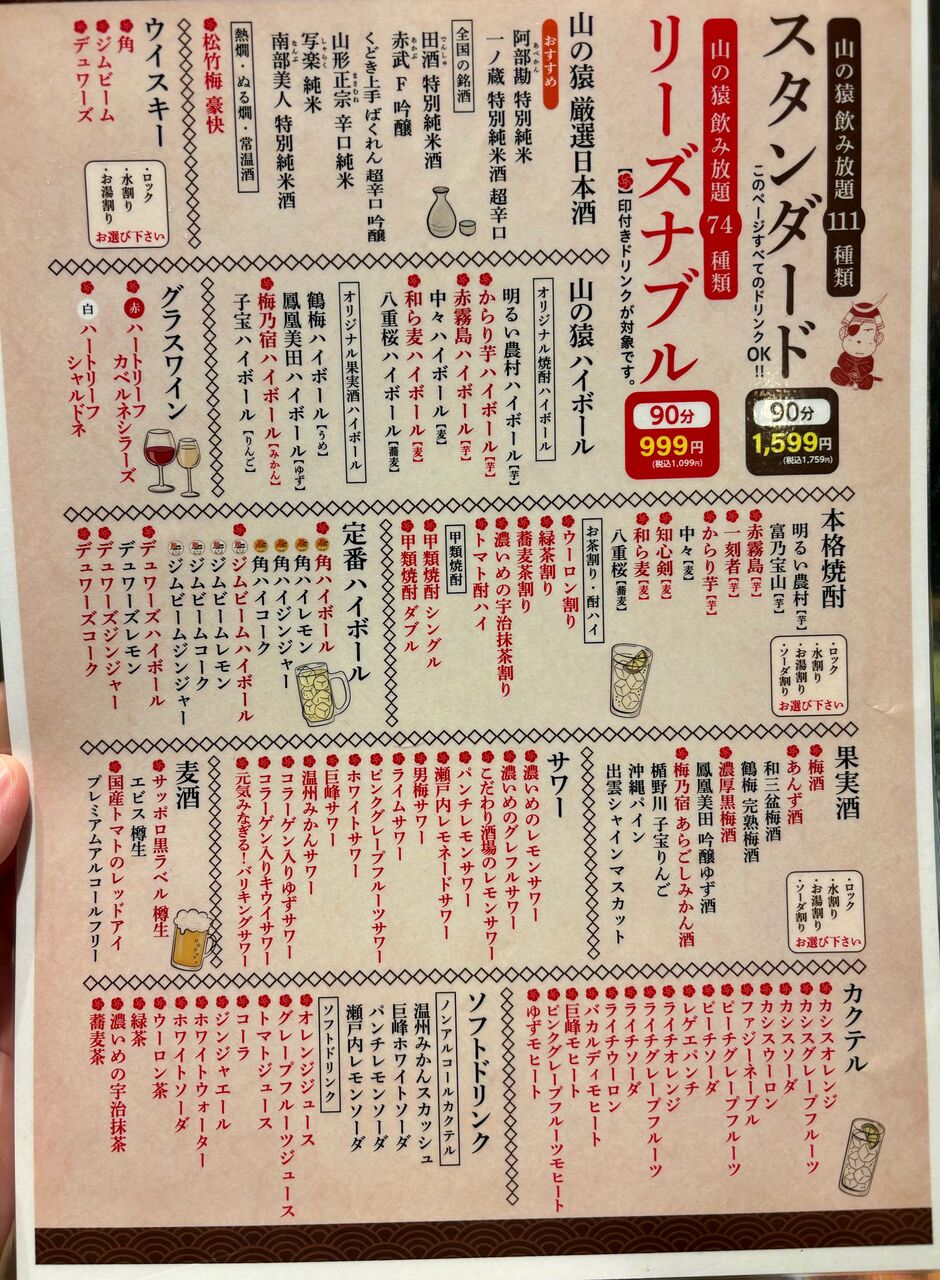 山の猿 飲み放題 111 種類
スタンダード
このページすべてのドリンクOK!!
90分
1,599円
(税込1,759円)
山の猿 飲み放題 74 種類
リーズナブル
【印付きドリンクが対象です。
90分
999円
(税込1,099円)
山の猿 厳選日本酒
おすすめ
阿部勘 特別純米
あべかん
一ノ蔵 特別純米酒 超辛口
全国の銘酒
田酒 特別純米酒
でんしゅ
赤武 F 吟醸
あかぶ
くどき上手 ばくれん 超辛口 吟醸
山形正宗 辛口純米
まさむね
写楽 純米
しゃらく
南部美人 特別純米酒
なんぶ
熱燗・ぬる燗・常温酒
松竹梅 豪快
ウイスキー
角
ジムビーム
デュワーズ
・ロック
・水割り
・お湯割り
お選び下さい
山の猿ハイボール
オリジナル焼酎ハイボール
明るい農村ハイボール【芋】
からり芋ハイボール【芋】
赤霧島ハイボール【芋】
中々ハイボール【麦】
和ら麦ハイボール【麦】
八重桜ハイボール【蕎麦】
オリジナル果実酒ハイボール
鶴梅ハイボール【うめ】
鳳凰美田ハイボール【ゆず】
梅乃宿ハイボール【みかん】
子宝ハイボール【りんご】
グラスワイン
赤 ハートリーフ
カベルネシラーズ
白 ハートリーフ
シャルドネ
本格焼酎
・ロック
・水割り
・お湯割り
・ソーダ割り
お選び下さい
明るい農村【芋】
富乃宝山【芋】
赤霧島【芋】
一刻者【芋】
からり芋【芋】
中々【麦】
知心剣【麦】
和ら麦【麦】
八重桜【蕎麦】
お茶割り・酎ハイ
ウーロン割り
緑茶割り
蕎麦茶割り
濃いめの宇治抹茶割り
トマト酎ハイ
甲類焼酎
甲類焼酎 シングル
甲類焼酎 ダブル
定番ハイボール
角ハイボール
角ハイレモン
角ハイジンジャー
角ハイコーク
ジムビームハイボール
ジムビームレモン
ジムビームコーク
ジムビームジンジャー
デュワーズハイボール
デュワーズレモン
デュワーズジンジャー
デュワーズコーク
果実酒
・ロック
・水割り
・お湯割り
・ソーダ割り
お選び下さい
梅酒
あんず酒
和三盆梅酒
鶴梅 完熟梅酒
濃厚黒梅酒
鳳凰美田 吟醸ゆず酒
梅乃宿 あらごしみかん酒
楯野川 子宝りんご
沖縄パイン
出雲シャインマスカット
サワー
濃いめのレモンサワー
濃いめのグレフルサワー
こだわり酒場のレモンサワー
パンチレモンサワー
瀬戸内レモネードサワー
男梅サワー
ライムサワー
ピンクグレープフルーツサワー
ホワイトサワー
巨峰サワー
温州みかんサワー
コラーゲン入りゆずサワー
コラーゲン入りキウイサワー
元気みなぎる!バリキングサワー
麦酒
サッポロ黒ラベル 樽生
エビス 樽生
国産トマトのレッドアイ
プレミアムアルコールフリー
カクテル
カシスオレンジ
カシスグレープフルーツ
カシスソーダ
カシスウーロン
ファジーネーブル
ピーチグレープフルーツ
ピーチソーダ
レゲエパンチ
ライチオレンジ
ライチグレープフルーツ
ライチソーダ
ライチウーロン
バカルディモヒート
巨峰モヒート
ピンクグレープフルーツモヒート
ゆずモヒート
ソフトドリンク
ノンアルコールカクテル
温州みかんスカッシュ
巨峰ホワイトソーダ
パンチレモンソーダ
瀬戸内レモンソーダ
ソフトドリンク
オレンジジュース
グレープフルーツジュース
トマトジュース
コーラ
ジンジャエール
ホワイトウォーター
ホワイトソーダ
ウーロン茶
緑茶
濃いめの宇治抹茶
蕎麦茶